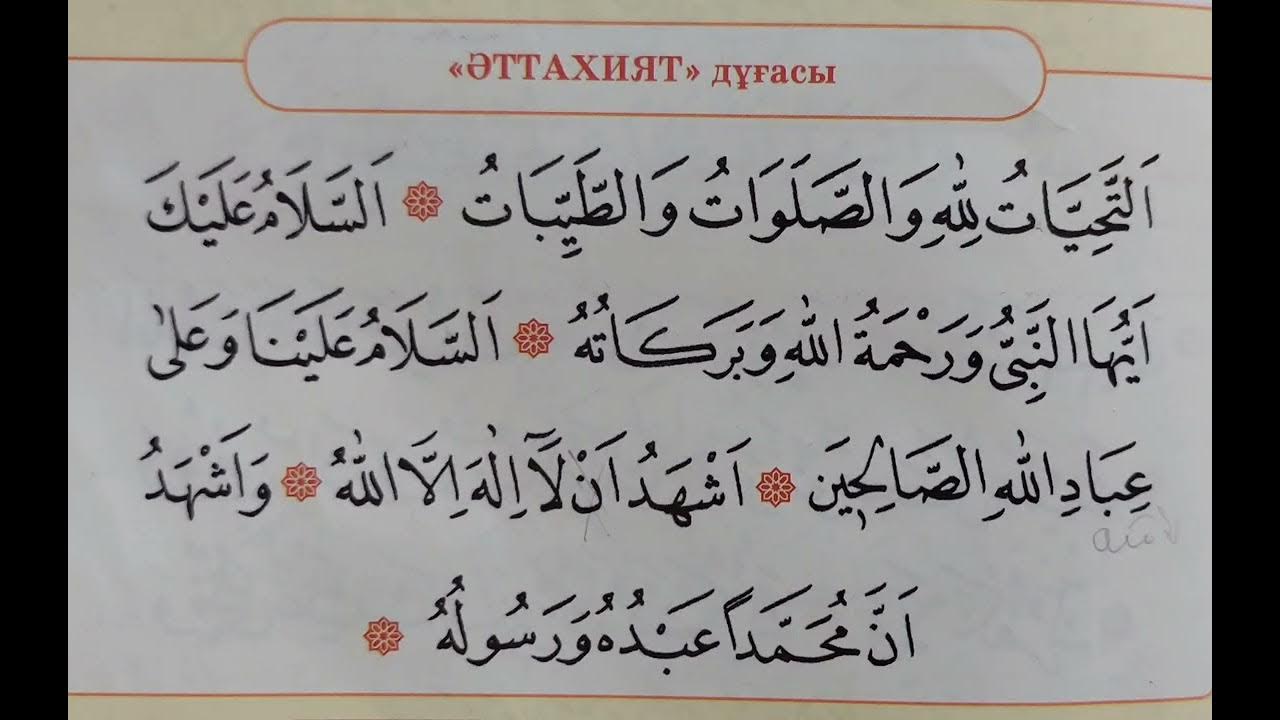 «ӘТТАХИЯТ» дұғасы
اَلتَّحِيَّاتُ لِلّٰهِ وَالصَّلَوَاتُ وَالطَّيِّبَاتُ ۞ اَلسَّلَامُ عَلَيْكَ
اَيُّهَا النَّبِىُّ وَرَحْمَةُ اللّٰهِ وَبَرَكَاتُهُ ۞ اَلسَّلَامُ عَلَيْنَا وَعَلٰى
عِبَادِ اللّٰهِ الصَّالِحِينَ ۞ اَشْهَدُ اَنْ لَآ اِلٰهَ اِلَّا اللّٰهُ ۞ وَاَشْهَدُ
اَنَّ مُحَمَّدًا عَبْدُهُ وَرَسُولُهُ ۞